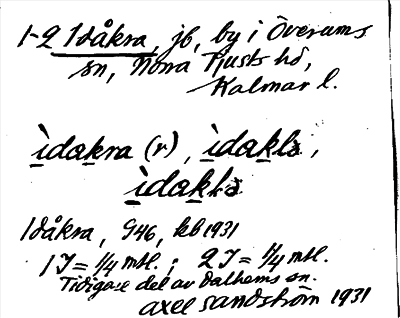 1-2 Idåkra, jb, by i Överums
sn, Norra Tjusts hd,
Kalmar l.
ìdakra (r), ìdaklə,
ìdaklə
Idåkra, G46, kb 1931
1 I = 1/4 mtl. ; 2 I = 1/4 mtl.
Tidigare del av Dalhems sn.
Axel Sandström 1931